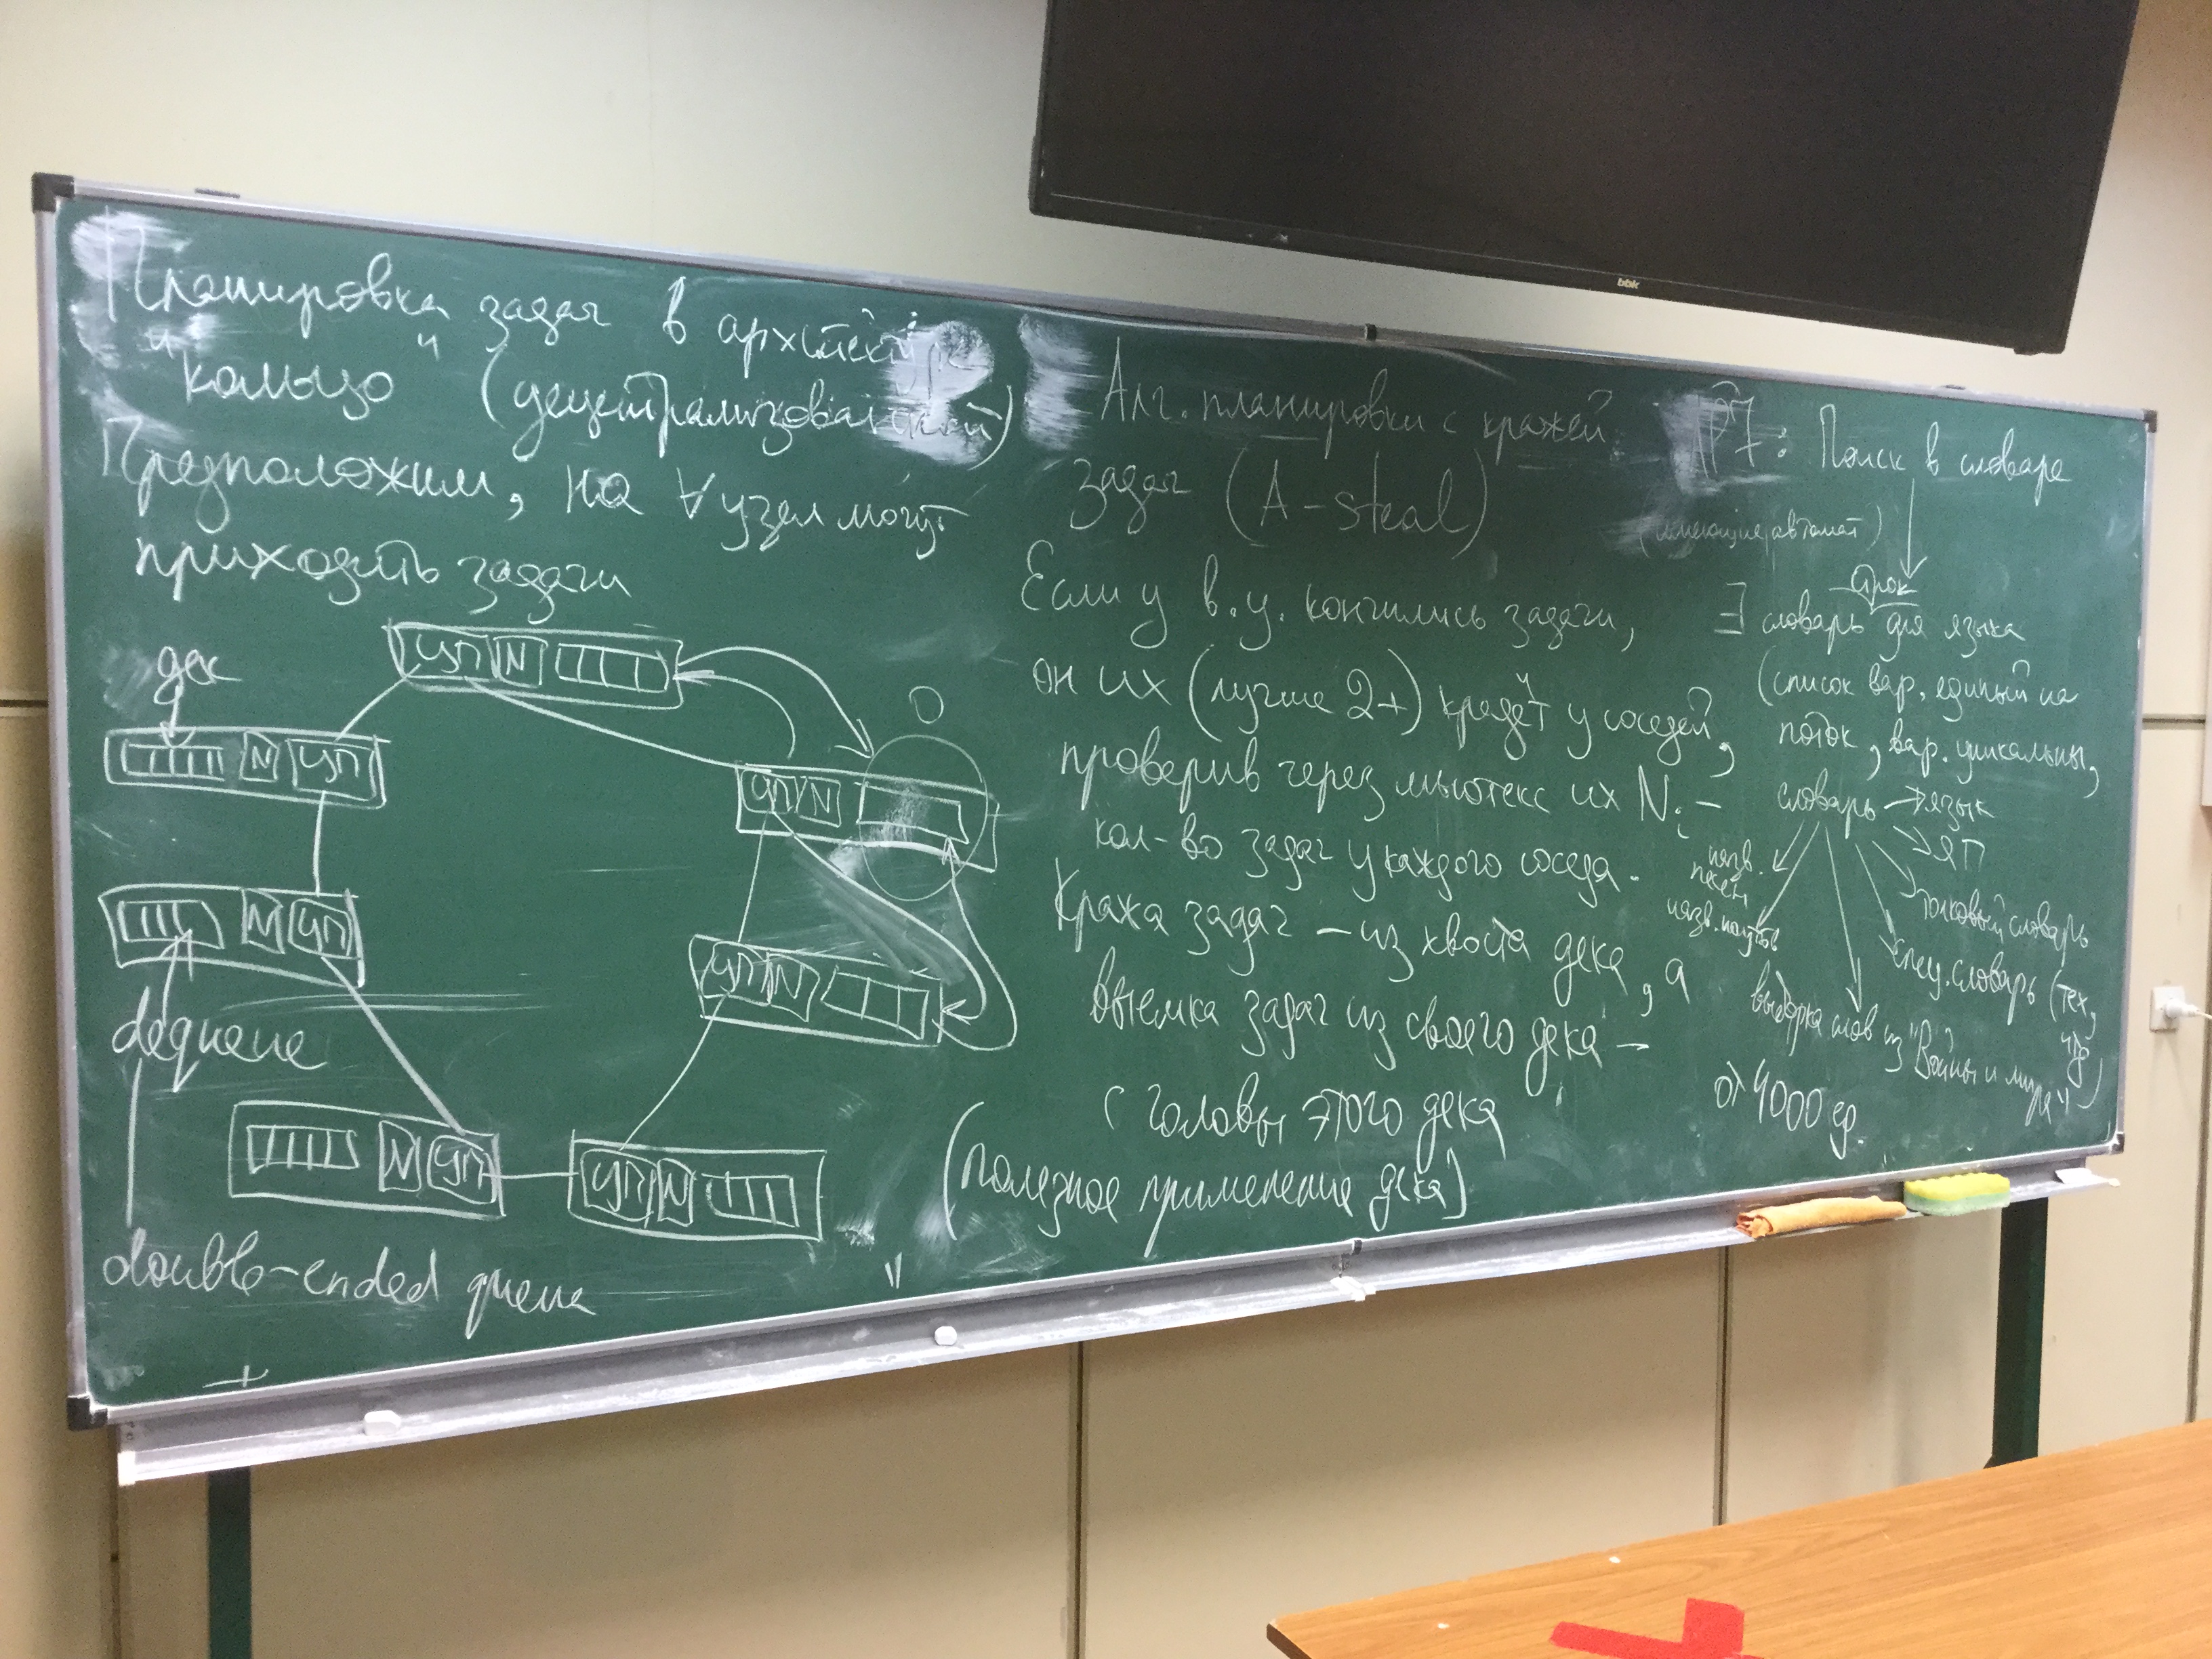 Планировка задач в архитектуре
"кольцо" (децетрализованной)
Предположим, на ∀ узел могут
приходить задачи
дек
ЦП N
N ЦП
N ЦП
N ЦП
ЦП N
ЦП N
ЦП N
0
dequeue
double-ended queue
Алг. планировки с кражей
задач (A-steal)
Если у в.у. кончились задачи,
он их (лучше 2+) "крадёт" у соседей,
проверив через мьютекс их Ni –
кол-во задач у каждого соседа.
Кража задач – из хвоста дека, а
выемка задач из своего дека –
с головы этого дека
(полезное применение дека)
P7: Поиск в словаре
(имеющие автомат)
строк
∃ словарь для языка
(список вар. единый на
поток, вар. уникальны,
словарь → язык
ЯП
толковый словарь
спец. словарь (тех,
назв.
песен
назв.
выборка слов из "Войны и мира")
от 4000 ед.
bbk